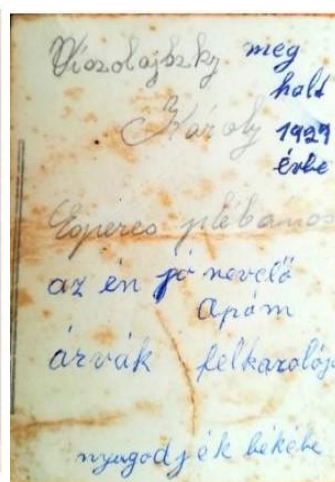 meg
halt
Károly 1929
évbe
Eperes plébános
az én jó nevelő
apám
árvák félkarolója
nyugodjék békébe